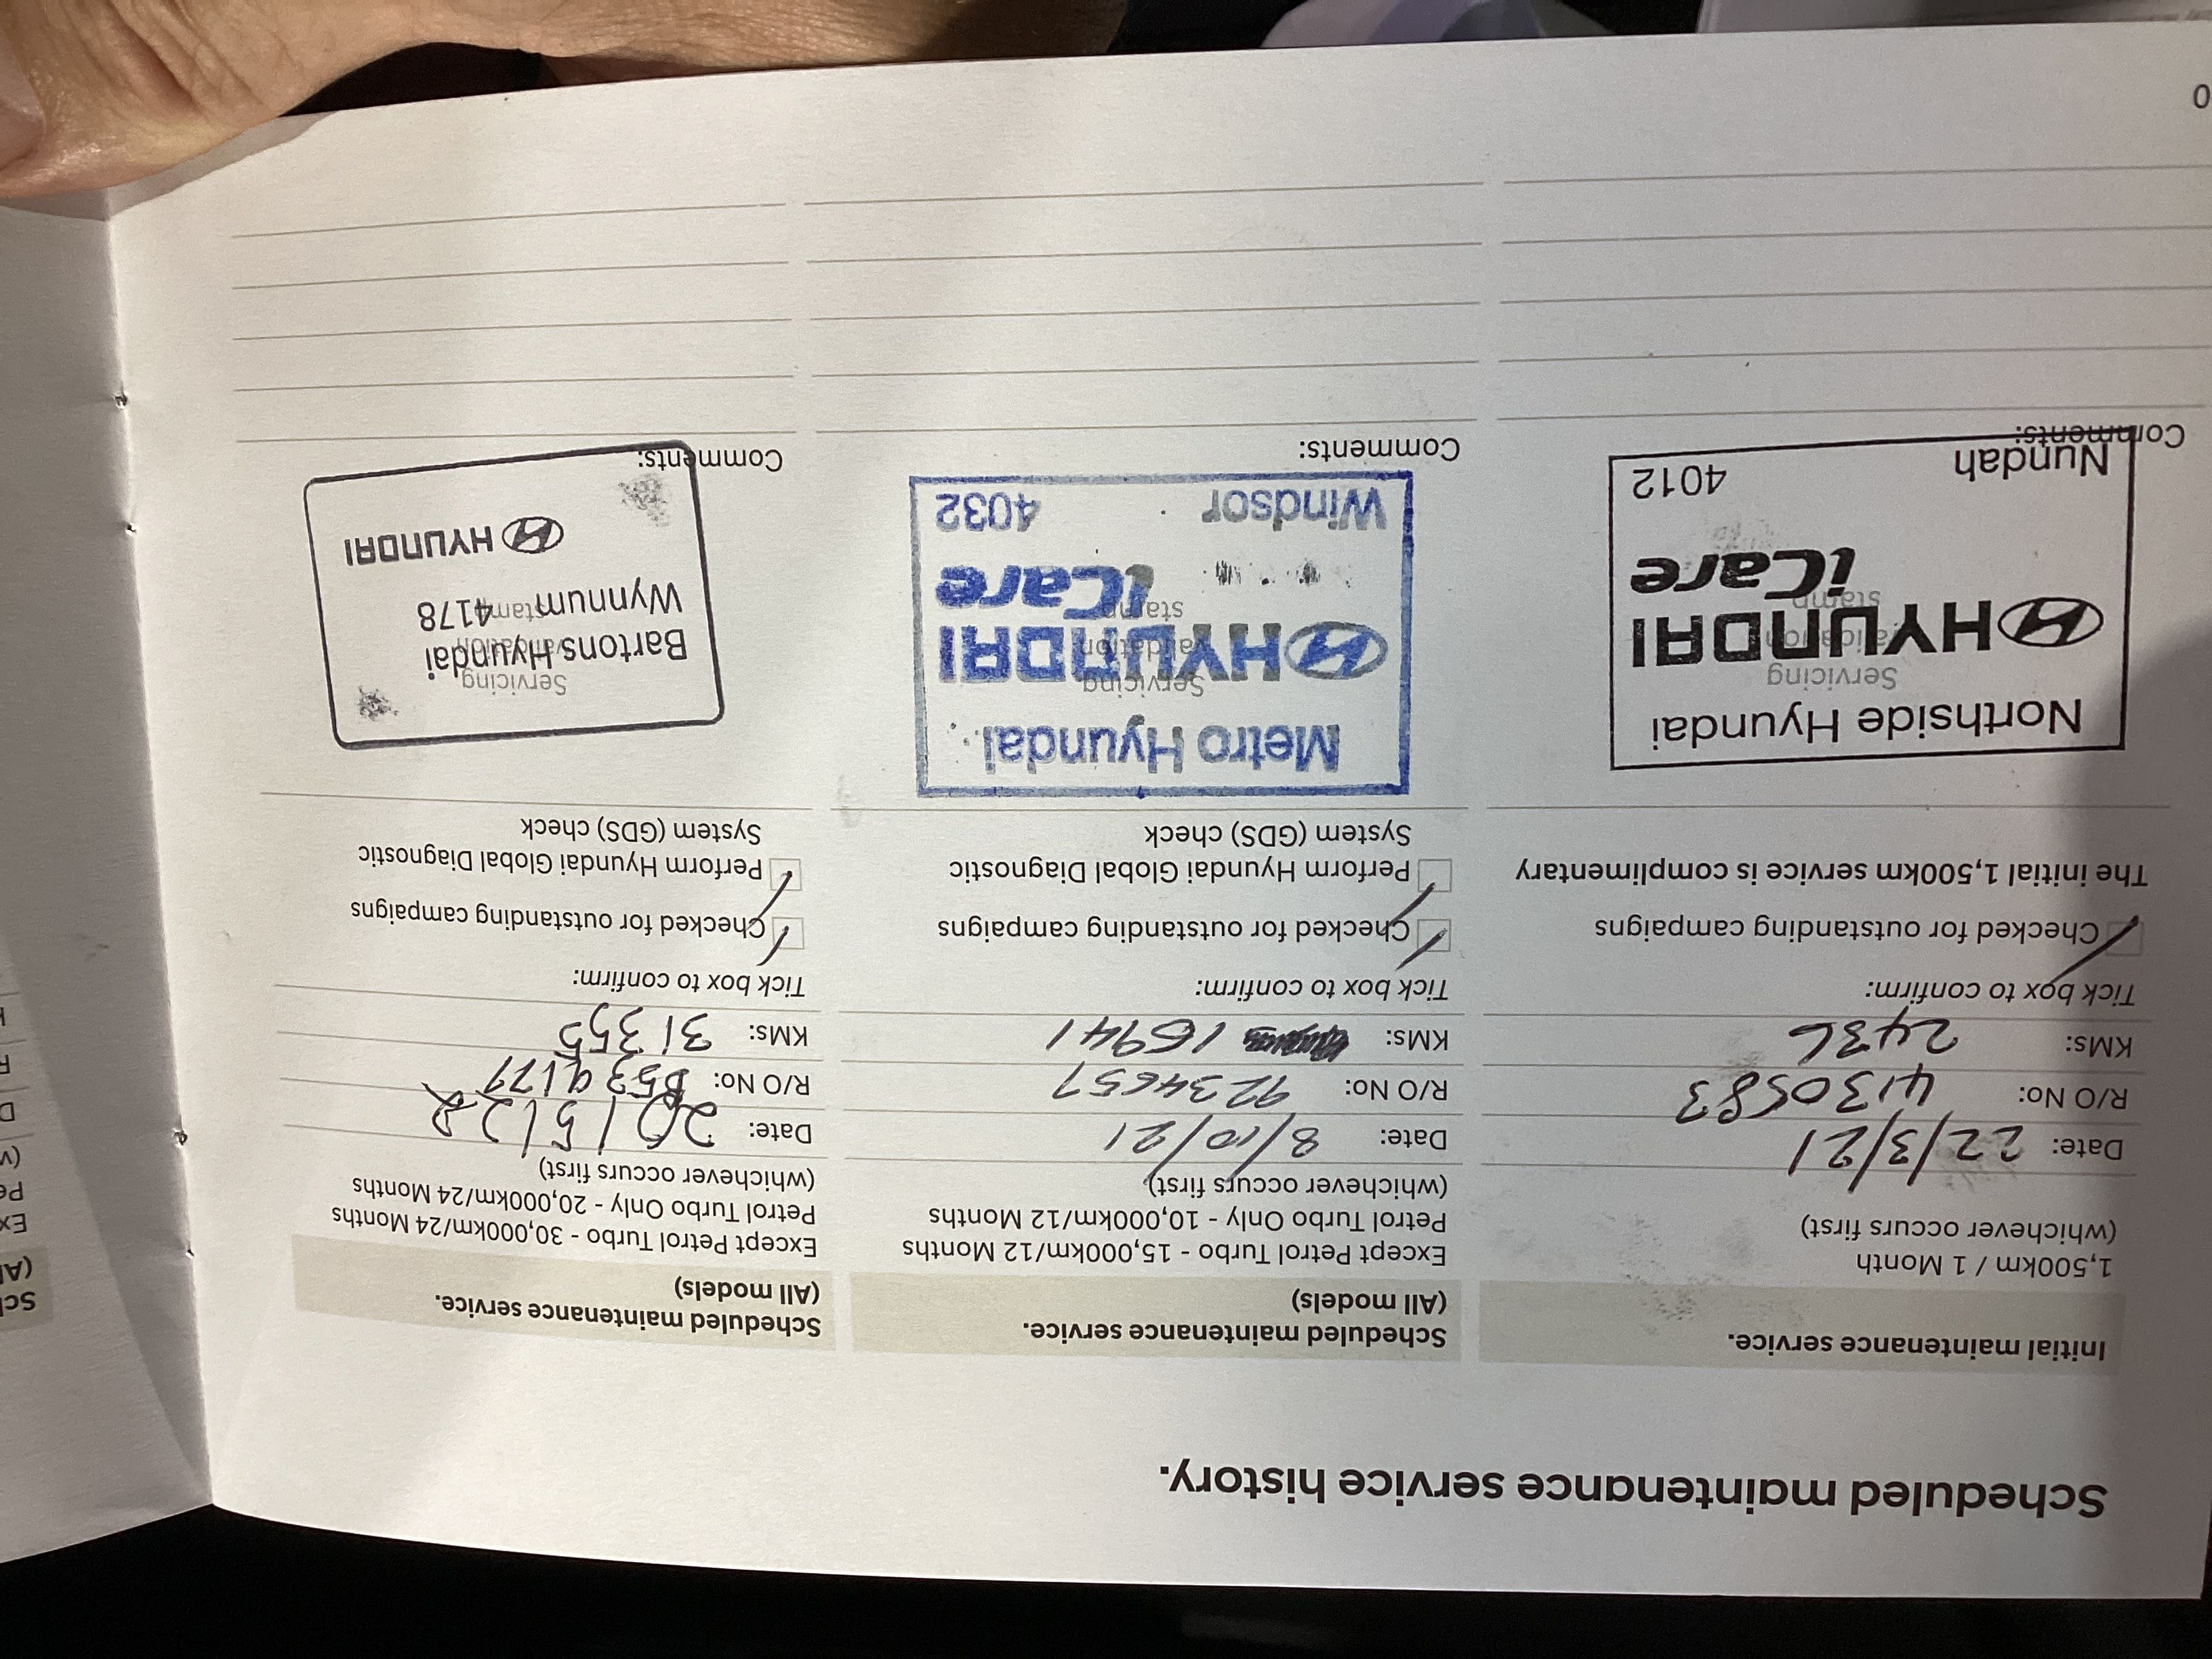 Scheduled maintenance service history.
Initial maintenance service.
1,500km / 1 Month
(whichever occurs first)
Date: 22/3/21
R/O No: 4130583
KMs: 2436
Tick box to confirm:
Checked for outstanding campaigns
The initial 1,500km service is complimentary
Northside Hyundai
Servicing
validation
stamp
HYUNDAI
iCare
Nundah 4012
Comments:
Scheduled maintenance service.
(All models)
Except Petrol Turbo - 15,000km/12 Months
Petrol Turbo Only - 10,000km/12 Months
(whichever occurs first)
Date: 8/10/21
R/O No: 9234657
KMs: 16941
Tick box to confirm:
Checked for outstanding campaigns
Perform Hyundai Global Diagnostic
System (GDS) check
Metro Hyundai
Servicing
validation
stamp
HYUNDAI
iCare
Windsor 4032
Comments:
Scheduled maintenance service.
(All models)
Except Petrol Turbo - 30,000km/24 Months
Petrol Turbo Only - 20,000km/24 Months
(whichever occurs first)
Date: 20/5/22
R/O No:
KMs: 31355
Tick box to confirm:
Checked for outstanding campaigns
Perform Hyundai Global Diagnostic
System (GDS) check
Servicing
validation
stamp
Bartons Hyundai
Wynnum 4178
HYUNDAI
Comments:
0